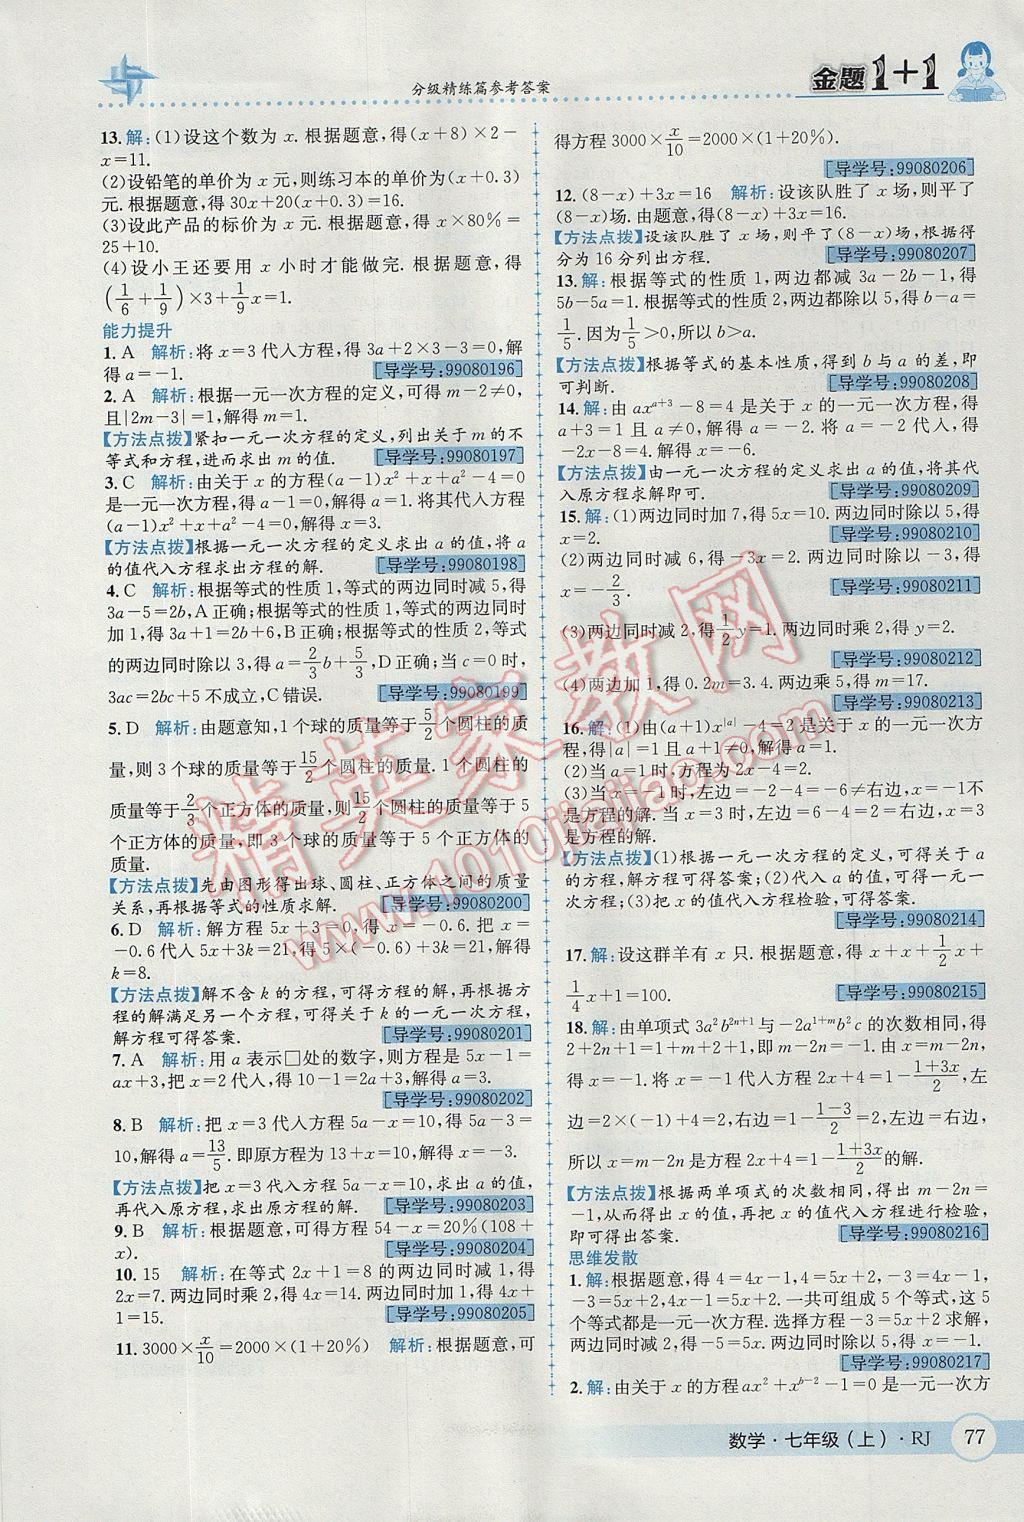 分级精练篇参考答案
金题1+1
13.解:(1)设这个数为 x.根据题意,得(x+8)×2-
x=11.
(2)设铅笔的单价为 x 元,则练习本的单价为(x+0.3)
元.根据题意,得 30x+20(x+0.3)=16.
(3)设此产品的标价为 x 元.根据题意,得 x×80%=
25+10.
(4)设小王还要用 x 小时才能做完.根据题意,得
(1/6+1/9)×3+1/9x=1.
能力提升
1. A 解析:将 x=3 代入方程,得 3a+2×3-3=0,解
得 a=-1. [导学号:99080196]
2. A 解析:根据一元一次方程的定义,可得 m-2≠0,
且|2m-3|=1,解得 m=1.
【方法点拨】紧扣一元一次方程的定义,列出关于 m 的不
等式和方程,进而求出 m 的值. [导学号:99080197]
3. C 解析:由关于 x 的方程(a-1)x²+x+a²-4=0
是一元一次方程,得 a-1=0,解得 a=1.将其代入方程
(a-1)x²+x+a²-4=0,解得 x=3.
【方法点拨】根据一元一次方程的定义求出 a 的值,将 a
的值代入方程求出方程的解. [导学号:99080198]
4. C 解析:根据等式的性质 1,等式的两边同时减 5,得
3a-5=2b,A 正确;根据等式的性质 1,等式的两边同时
加 1,得 3a+1=2b+6,B 正确;根据等式的性质 2,等式
的两边同时除以 3,得 a=2/3b+5/3,D 正确;当 c=0 时,
3ac=2bc+5 不成立,C 错误. [导学号:99080199]
5. D 解析:由题意知,1 个球的质量等于5/2个圆柱的质
量,则 3 个球的质量等于15/2个圆柱的质量.1 个圆柱的
质量等于2/3个正方体的质量,则15/2个圆柱的质量等于 5
个正方体的质量,即 3 个球的质量等于 5 个正方体的
质量.
【方法点拨】先由图形得出球、圆柱、正方体之间的质量
关系,再根据等式的性质求解. [导学号:99080200]
6. D 解析:解方程 5x+3=0,得 x=-0.6.把 x=
-0.6代入 5x+3k=21,得 5×(-0.6)+3k=21,解得
k=8.
【方法点拨】解不含 k 的方程,可得方程的解,再根据方
程的解满足另一个方程,可得关于 k 的一元一次方程,
解方程可得答案. [导学号:99080201]
7. A 解析:用 a 表示□处的数字,则方程是 5x-1=
ax+3,把 x=2代入,得 10-1=2a+3,解得 a=3.
[导学号:99080202]
8. B 解析:把 x=3 代入方程 5a-x=10,得 5a-3=
10,解得 a=13/5.即原方程为 13+x=10,解得 x=-3.
【方法点拨】把 x=3 代入方程 5a-x=10,求出 a 的值,
再代入原方程,求出原方程的解. [导学号:99080203]
9. B 解析:根据题意,可得方程 54-x=20%(108+
x). [导学号:99080204]
10. 15 解析:在等式 2x+1=8 的两边同时减 1,得
2x=7.两边同时乘 2,得 4x=14.两边同时加 1,得 4x+
1=15. [导学号:99080205]
11. 3000×x/10=2000×(1+20%) 解析:根据题意,可
得方程 3000×x/10=2000×(1+20%).
[导学号:99080206]
12. (8-x)+3x=16 解析:设该队胜了 x 场,则平了
(8-x)场.由题意,得(8-x)+3x=16.
【方法点拨】设该队胜了 x 场,则平了(8-x)场,根据得
分为 16 分列出方程. [导学号:99080207]
13.解:根据等式的性质 1,两边都减 3a-2b-1,得
5b-5a=1.根据等式的性质 2,两边都除以 5,得 b-a=
1/5.因为1/5>0,所以 b>a.
【方法点拨】根据等式的基本性质,得到 b 与 a 的差,即
可判断. [导学号:99080208]
14.解:由 axᵃ⁺³-8=4 是关于 x 的一元一次方程,得
a+3=1 且 a≠0,解得 a=-2.将 a=-2 代入,得
-2x-8=4.解得 x=-6.
【方法点拨】由一元一次方程的定义求出 a 的值,将其代
入原方程求解即可. [导学号:99080209]
15.解:(1)两边同时加 7,得 5x=10.两边同时除以 5,得
x=2. [导学号:99080210]
(2)两边同时减 6,得-3x=2.两边同时除以-3,得
x=-2/3. [导学号:99080211]
(3)两边同时减 2,得1/2y=1.两边同时乘 2,得 y=2.
[导学号:99080212]
(4)两边加 1,得 0.2m=3.4.两边乘 5,得 m=17.
[导学号:99080213]
16.解:(1)由(a+1)x^|a|-4=2是关于 x 的一元一次方
程,得|a|=1且 a+1≠0,解得 a=1.
(2)当 a=1时,方程为 2x-4=2.
(3)当 x=-1时,左边=-2-4=-6≠右边,x=-1不
是方程的解.当 x=3时,左边=6-4=2=右边,x=3
是方程的解.
【方法点拨】(1)根据一元一次方程的定义,可得关于 a
的方程,解方程可得答案;(2)代入 a 的值,可得一元一
次方程;(3)把 x 的值代入方程检验,可得答案.
[导学号:99080214]
17.解:设这群羊有 x 只.根据题意,得 x+x+1/2x+
1/4x+1=100. [导学号:99080215]
18.解:由单项式 3a²b²ⁿ⁺¹与-2a¹⁺ᵐb²c 的次数相同,得
2+2n+1=1+m+2+1,即 m-2n=-1.由 x=m-2n,
得 x=-1.将 x=-1 代入方程 2x+4=-(1+3x)/2,左
边=2×(-1)+4=2,右边=-(1-3)/2=1... 
所以 x=m-2n是方程 2x+4=-(1+3x)/2的解.
【方法点拨】根据两单项式的次数相同,得出 m-2n=
-1,从而得出 x 的值,再把 x 的值代入原方程进行检验,
即可得出答案. [导学号:99080216]
思维发散
1.解:根据题意,得 4=4x,4=5x+2,-3=4x-1,
-3=5x+2,4x-1=5x+2.一共可组成 5 个等式,这 5
个等式都是一元一次方程.选择方程-3=5x+2求解,
两边同时减 2,得-5=5x.两边同时除以 5,得 x=-1.
[导学号:99080217]
2.解:由关于 x 的方程 ax²+xᵇ⁻²-1=0 是一元一次方
数学·七年级(上)·RJ 77
精英家教网
www.1010jiajiao.com